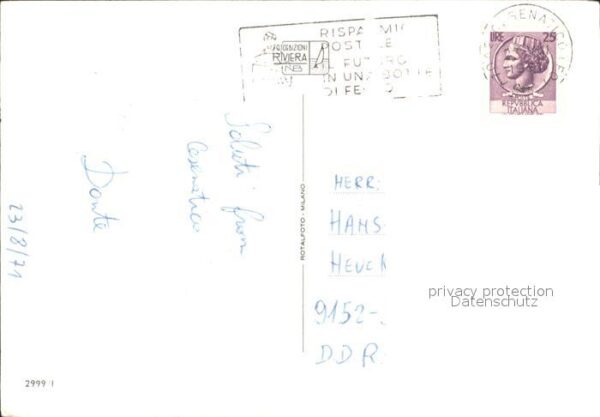 RISPARMIO
POSTALE
IL FUTURO
IN UNA BOTTE
DI FERRO
RIVIERA
CESENATICO (FO)
LIRE 25
REPVBBLICA
ITALIANA
Saluti from
Cesenatico
Dante
23/8/71
ROTALFOTO - MILANO
HERR:
HANS
9152-
DDR
privacy protection
Datenschutz
2999 I